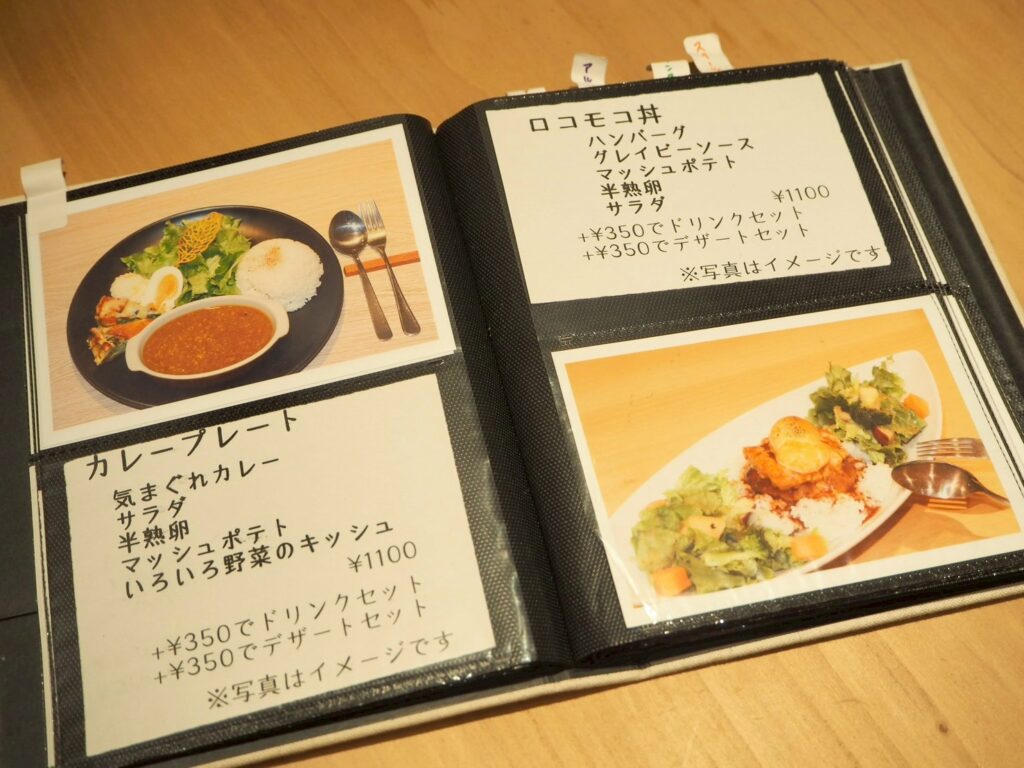 カレープレート
気まぐれカレー
サラダ
半熟卵
マッシュポテト
いろいろ野菜のキッシュ
¥1100
+¥350でドリンクセット
+¥350でデザートセット
※写真はイメージです
ロコモコ丼
ハンバーグ
グレイビーソース
マッシュポテト
半熟卵
サラダ
¥1100
+¥350でドリンクセット
+¥350でデザートセット
※写真はイメージです